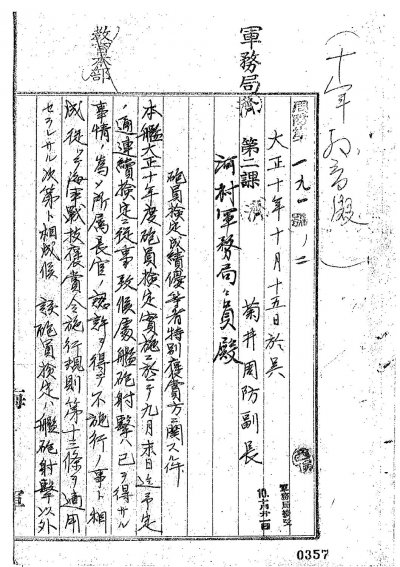 (十年
教育本部
周防第一九一號ノ二
大正十年十月十五日於呉
軍務局 済 第二課 済
菊井周防副長
河村軍務局々員殿
砲員検定成績優等者特別褒賞方ニ関スル件
本艦大正十年度砲員検定實施ニ於テ九月末日迄予定
ノ通連續検定従事致候處艦砲射撃ハ已ヲ得サル
事情ノ為メ所属長官ノ認許ヲ得テ不施行ノ事ト相
成従ツテ海軍戦技褒賞令施行規則第十三條ヲ適用
セラレサル次第ト相成候 該砲員検定ハ艦砲射撃以外
海
軍
0357